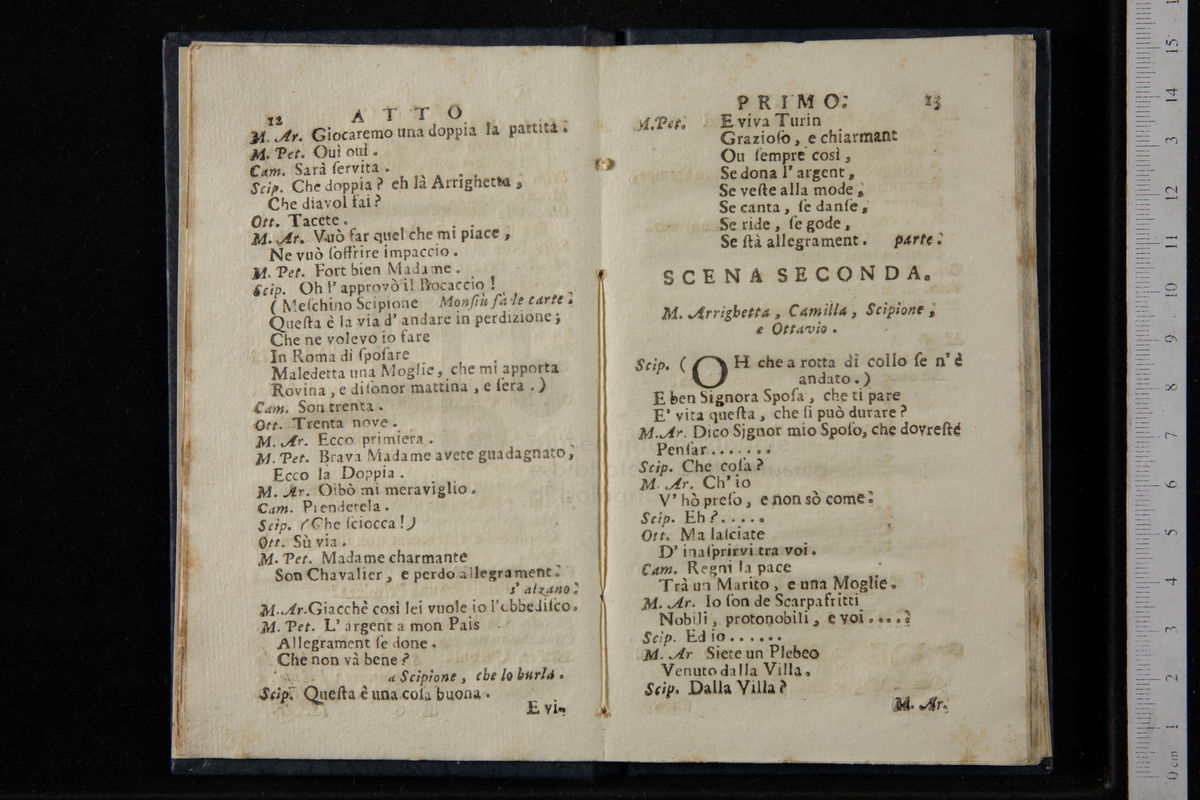 12 ATTO
M. Ar. Giocaremo una doppia la partita.
M. Pet. Ouì ouì.
Cam. Sarà ſervita.
Scip. Che doppia? eh là Arrighetta,
Che diavol fai?
Ott. Tacete.
M. Ar. Vuò far quel che mi piace,
Ne vuò ſoffrire impaccio.
M. Pet. Fort bien Madame.
Scip. Oh l' approvò il Bocaccio!
(Meſchino Scipione Monsiù fà le carte.
Queſta è la via d' andare in perdizione;
Che ne volevo io fare
In Roma di ſpoſare
Maledetta una Moglie, che mi apporta
Rovina, e diſonor mattina, e ſera.)
Cam. Son trenta.
Ott. Trenta nove.
M. Ar. Ecco primiera.
M. Pet. Brava Madame avete guadagnato,
Ecco la Doppia.
M. Ar. Oibò mi meraviglio.
Cam. Prendetela.
Scip. (Che ſciocca!)
Ott. Sù via.
M. Pet. Madame charmante
Son Chavalier, e perdo allegrament.
s' alzano.
M. Ar. Giacchè così lei vuole io l'obbediſco.
M. Pet. L' argent a mon Pais
Allegrament ſe done.
Che non và bene?
a Scipione, che lo burla.
Scip. Queſta è una coſa buona.
E vi-
PRIMO. 13
M. Pet. E viva Turin
Grazioſo, e chiarmant
Ou ſempre così,
Se dona l' argent,
Se veſte alla mode,
Se canta, ſe danſe,
Se ride, ſe gode,
Se ſtà allegrament. parte.
SCENA SECONDA.
M. Arrighetta, Camilla, Scipione,
e Ottavio.
Scip. (OH che a rotta di collo ſe n' è
andato.)
E ben Signora Spoſa, che ti pare
E' vita queſta, che ſi può durare?
M. Ar. Dico Sjgnor mio Spoſo, che dovreſte
Penſar.......
Scip. Che coſa?
M. Ar. Ch' io
V' hò preſo, e non sò come.
Scip. Eh?.....
Ott. Ma laſciate
D' inaſprirvi tra voi.
Cam. Regni la pace
Trà un Marito, e una Moglie.
M. Ar. Io ſon de Scarpafritti
Nobili, protonobili, e voi....?
Scip. Ed io......
M. Ar Siete un Plebeo
Venuto dalla Villa.
Scip. Dalla Villa?
M. Ar.